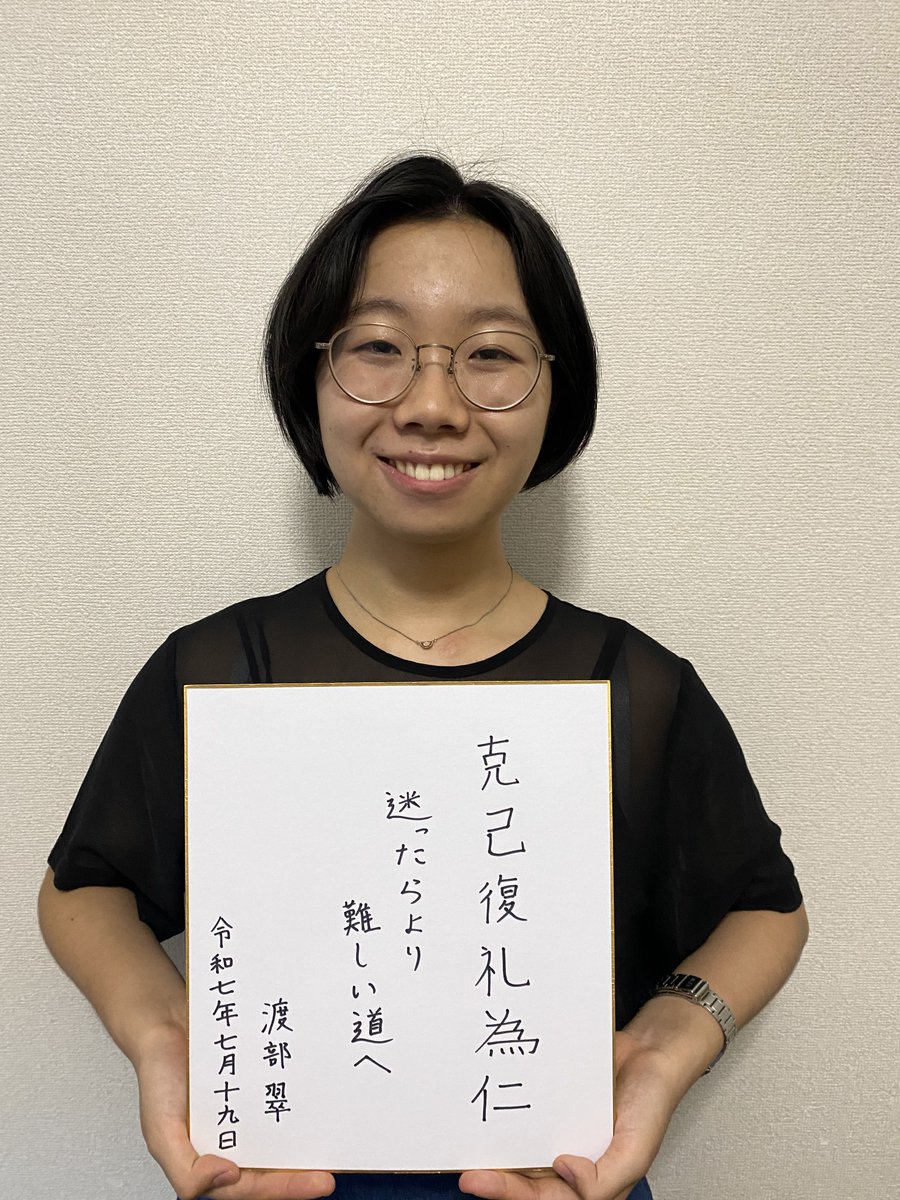 克己復礼為仁
迷ったらより
難しい道へ
渡部翠
令和七年七月十九日